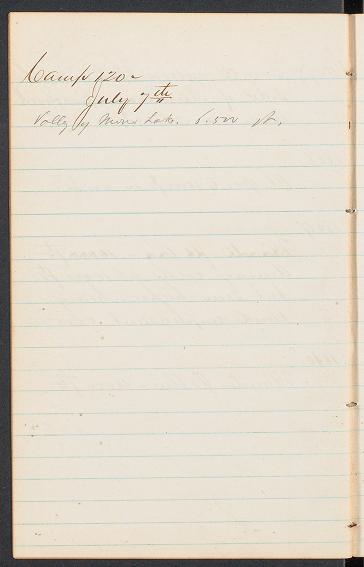 Camp 120 -
July 7th
Valley of Mono Lake. 6.500 ft.